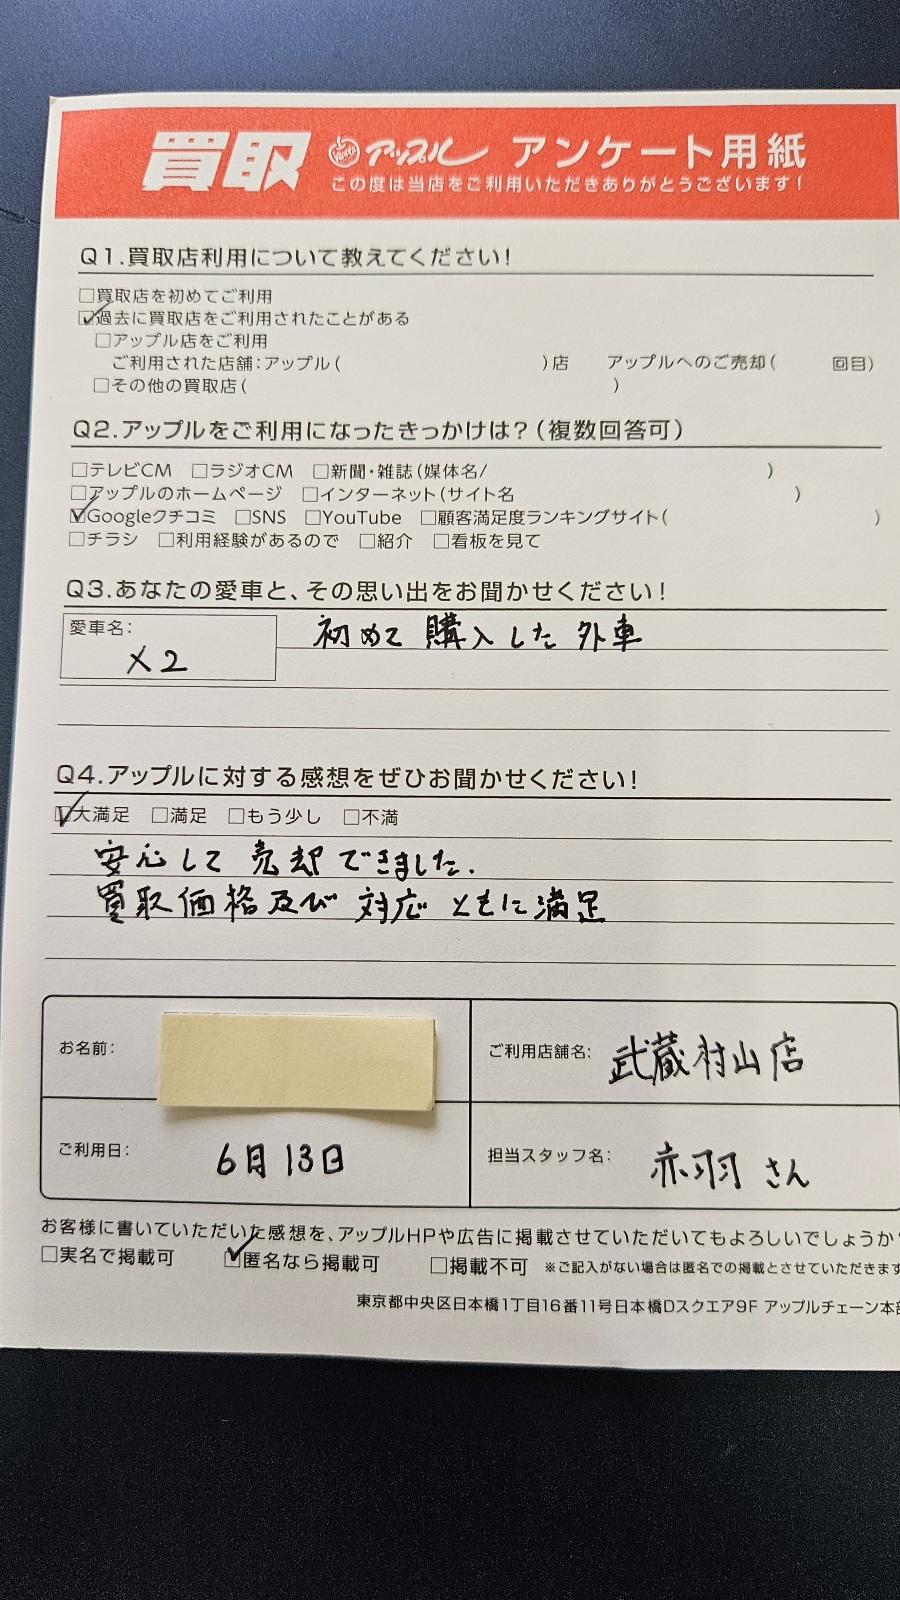 買取 Apple アップル アンケート用紙
この度は当店をご利用いただきありがとうございます!
Q1.買取店利用について教えてください!
□買取店を初めてご利用
☑過去に買取店をご利用されたことがある
□アップル店をご利用
ご利用された店舗:アップル( )店 アップルへのご売却( 回目)
□その他の買取店( )
Q2.アップルをご利用になったきっかけは?(複数回答可)
□テレビCM □ラジオCM □新聞・雑誌(媒体名/ )
□アップルのホームページ □インターネット(サイト名 )
☑Googleクチコミ □SNS □YouTube □顧客満足度ランキングサイト( )
□チラシ □利用経験があるので □紹介 □看板を見て
Q3.あなたの愛車と、その思い出をお聞かせください!
愛車名: X2
初めて購入した外車
Q4.アップルに対する感想をぜひお聞かせください!
☑大満足 □満足 □もう少し □不満
安心して売却できました.
買取価格及び対応ともに満足
お名前:
ご利用店舗名: 武蔵村山店
ご利用日: 6月13日
担当スタッフ名: 赤羽さん
お客様に書いていただいた感想を、アップルHPや広告に掲載させていただいてもよろしいでしょうか?
□実名で掲載可 ☑匿名なら掲載可 □掲載不可 ※ご記入がない場合は匿名での掲載とさせていただきます
東京都中央区日本橋1丁目16番11号日本橋Dスクエア9F アップルチェーン本部